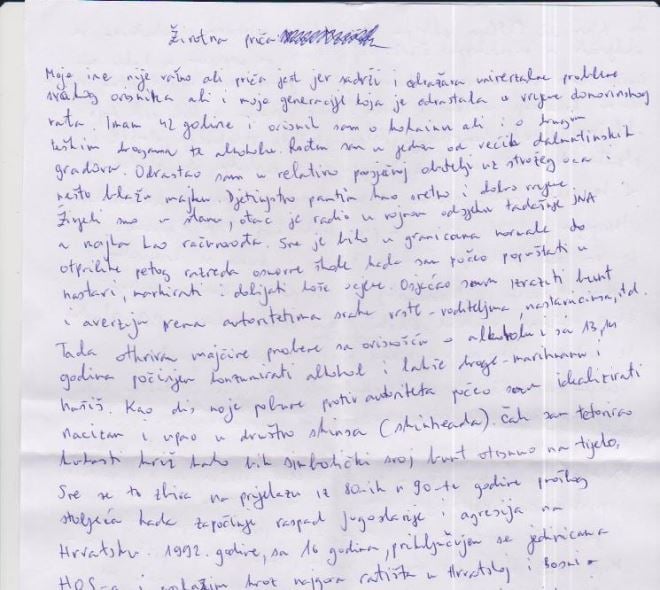 Životna priča
Moje ime nije važno ali priča jest jer sadrži i odražava univerzalne probleme
svakog ovisnika ali i moje generacije koja je odrastala u vrijeme domovinskog
rata. Imam 42 godine i ovisnik sam o kokainu ali i o drugim
teškim drogama te alkoholu. Rođen sam u jednom od većih dalmatinskih
gradova. Odrastao sam u relativno prosječnoj obitelji uz strožeg oca i
nešto blažu majku. Djetinjstvo pamtim kao sretno i dobro vrijeme.
Živjeli smo u stanu, otac je radio u vojnom odsjeku tadašnje JNA
a majka kao računovođa. Sve je bilo u granicama normale do
otprilike petog razreda osnovne škole kada sam počeo popuštati u
nastavi, markirati i dobijati loše ocjene. Osjećao sam izraziti bunt
i averziju prema autoritetima svake vrste - roditeljima, nastavnicima, itd.
Tada otkrivam majčine probleme sa ovisnošću o alkoholu i sa 13, 14
godina počinjem konzumirati alkohol i lakše droge - marihuanu i
hašiš. Kao dio moje pobune protiv autoriteta počeo sam idealizirati
nacizam i upao u društvo skinsa (skinheada). Čak sam tetovirao
kukasti križ kako bih simbolički svoj bunt otisnuo na tijelo.
Sve se to zbiva na prijelazu iz 80-ih u 90-te godine prošlog
stoljeća kada započinje raspad Jugoslavije i agresija na
Hrvatsku. 1992. godine, sa 16 godina, priključujem se jedinicama
HOS-a i prolazim kroz najgora ratišta u Hrvatskoj i Bosni